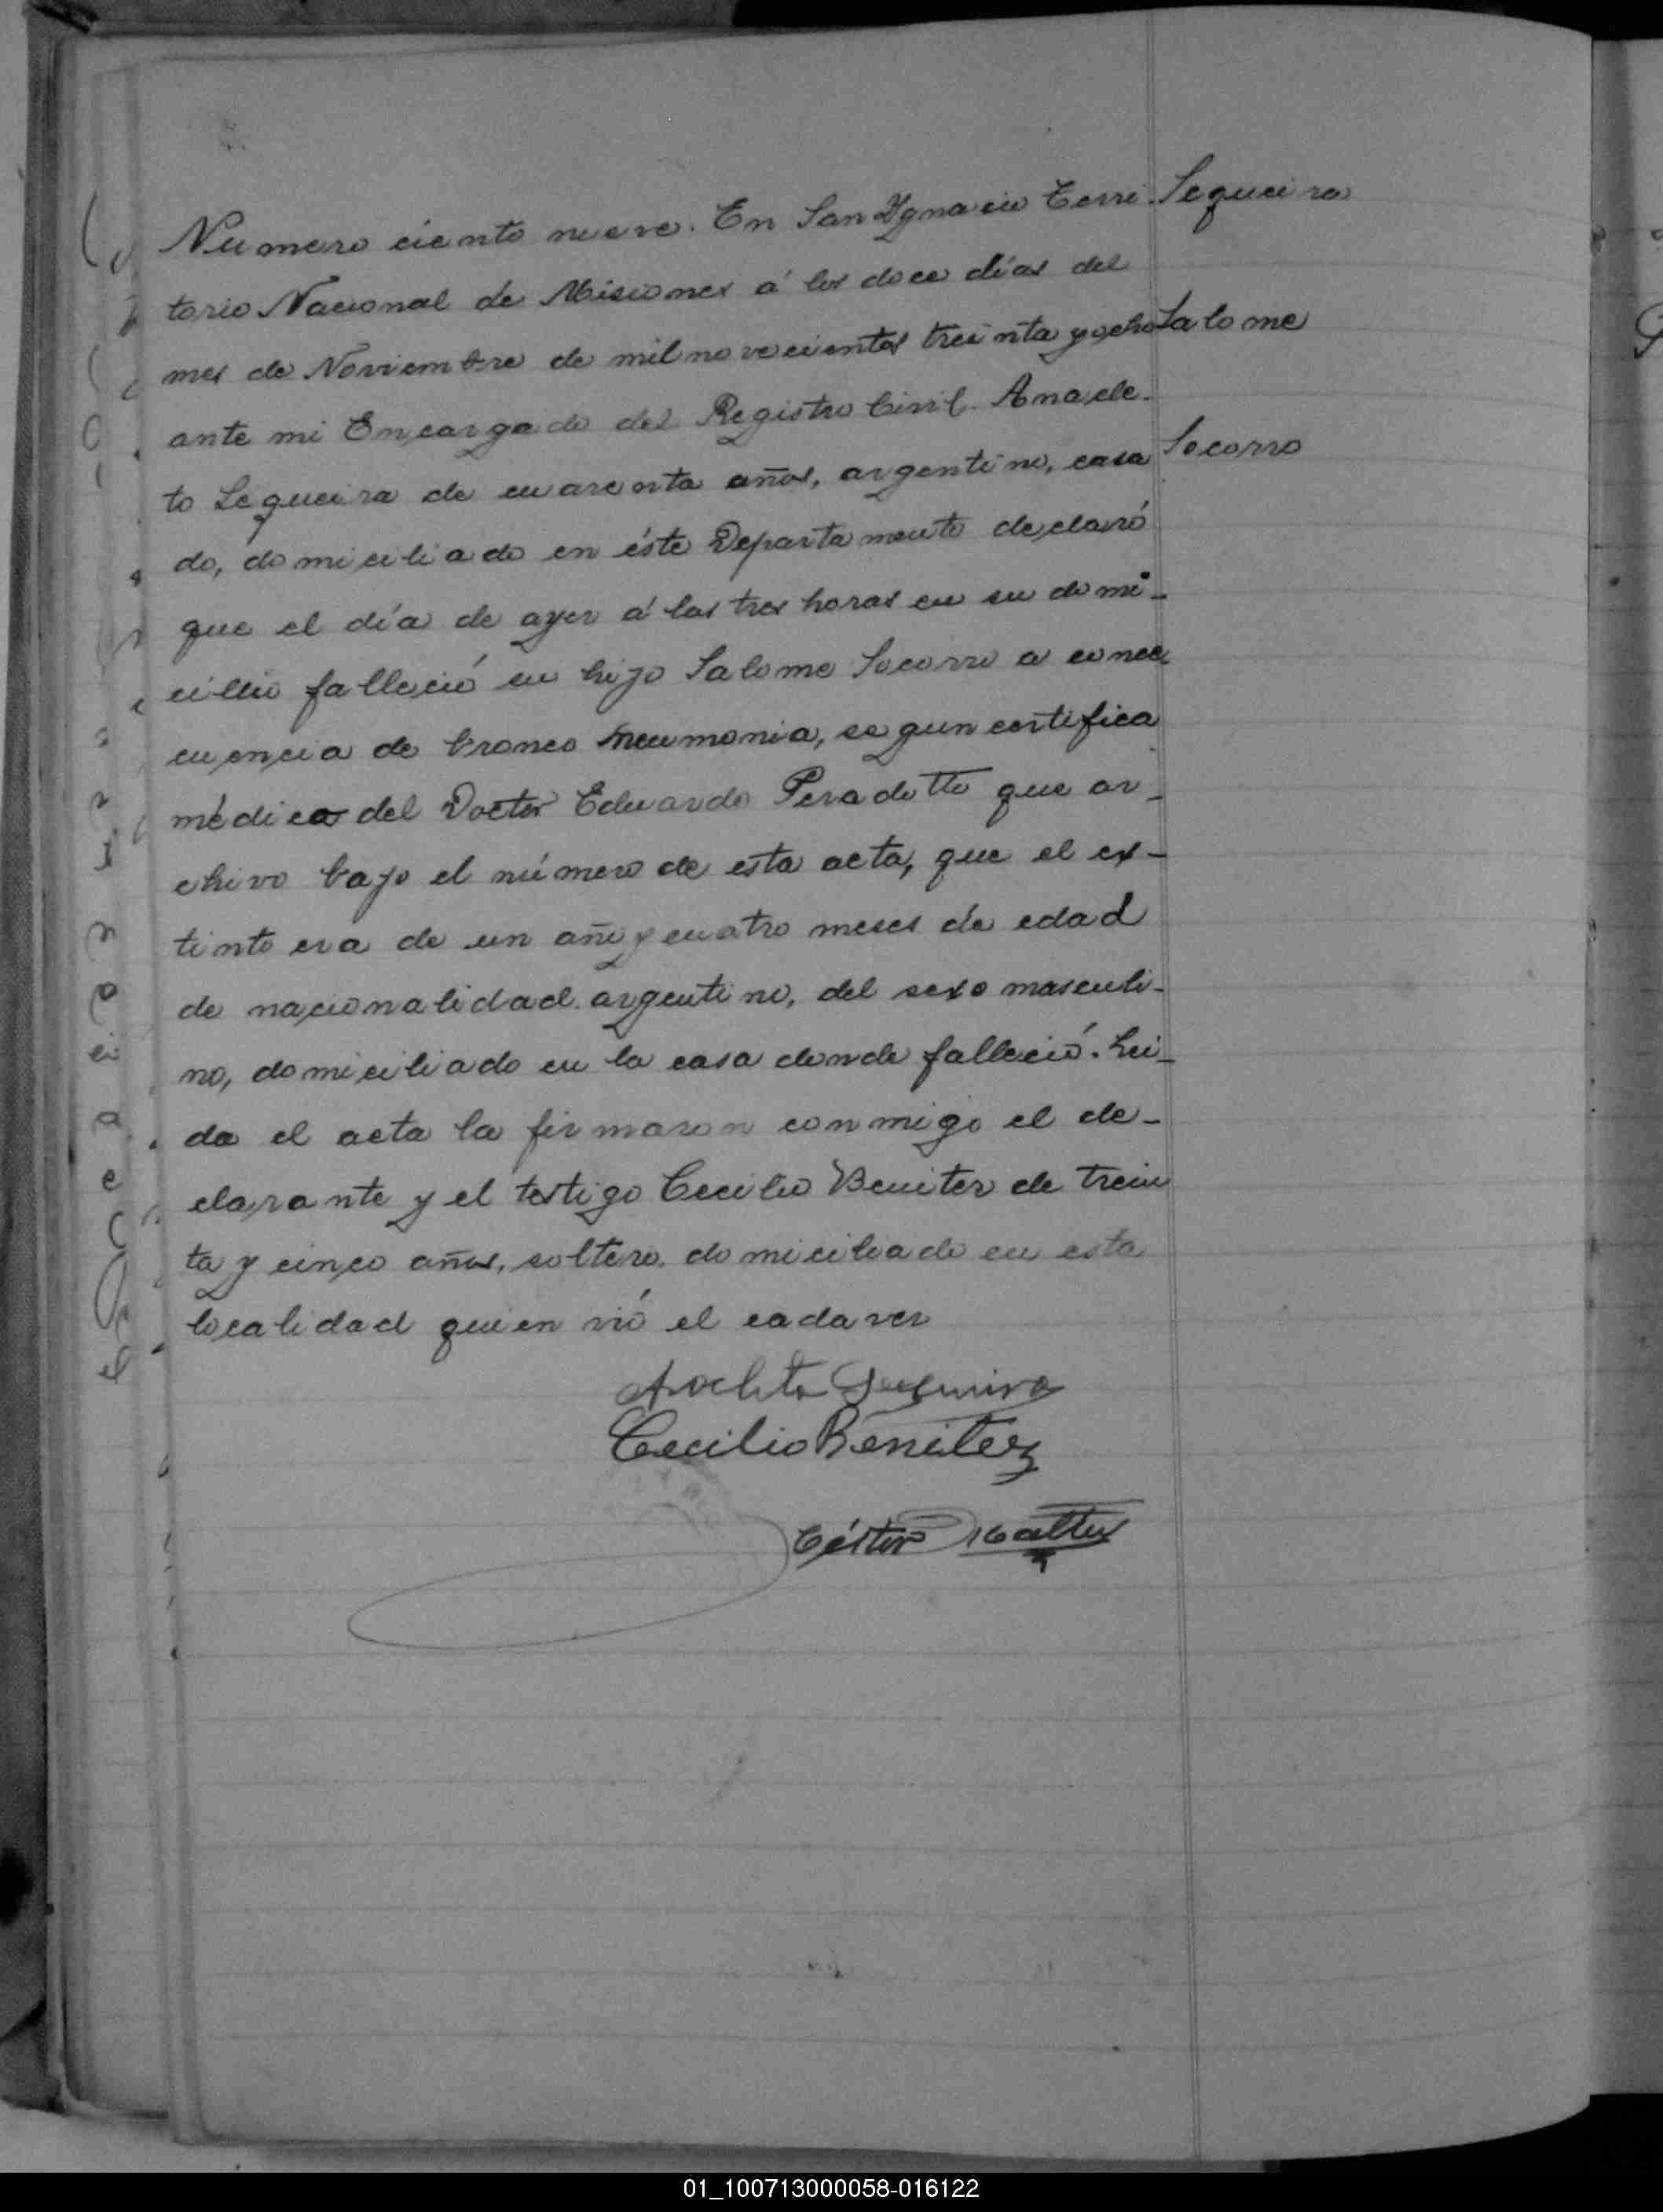 Numero ciento nueve. En San Ygnacio Terri-
torio Nacional de Misiones á los doce días del
mes de Noviembre de mil novecientos treinta y ocho
ante mi Encargado del Registro Civil. Anacle-
to Sequeira de cuarenta años, argentino, casa
do, domiciliado en éste Departamento declaró
que el día de ayer á las tres horas en su domi-
cilio falleció su hijo Salome Socorro a conse
cuencia de bronco neumonia, segun certifica
médico del Doctor Eduardo Peradotto que ar-
chivo bajo el número de esta acta, que el ex-
tinto era de un año y cuatro meses de edad
de nacionalidad argentino, del sexo masculi-
no, domiciliado en la casa donde falleció. Lei-
da el acta la firmaron conmigo el de-
clarante y el testigo Cecilio Beniter de trein
ta y cinco años, soltero, domiciliado en esta
localidad quien vió el cadaver
Sequeira
Salome
Socorro
Cecilio Benitez
01_100713000058-016122